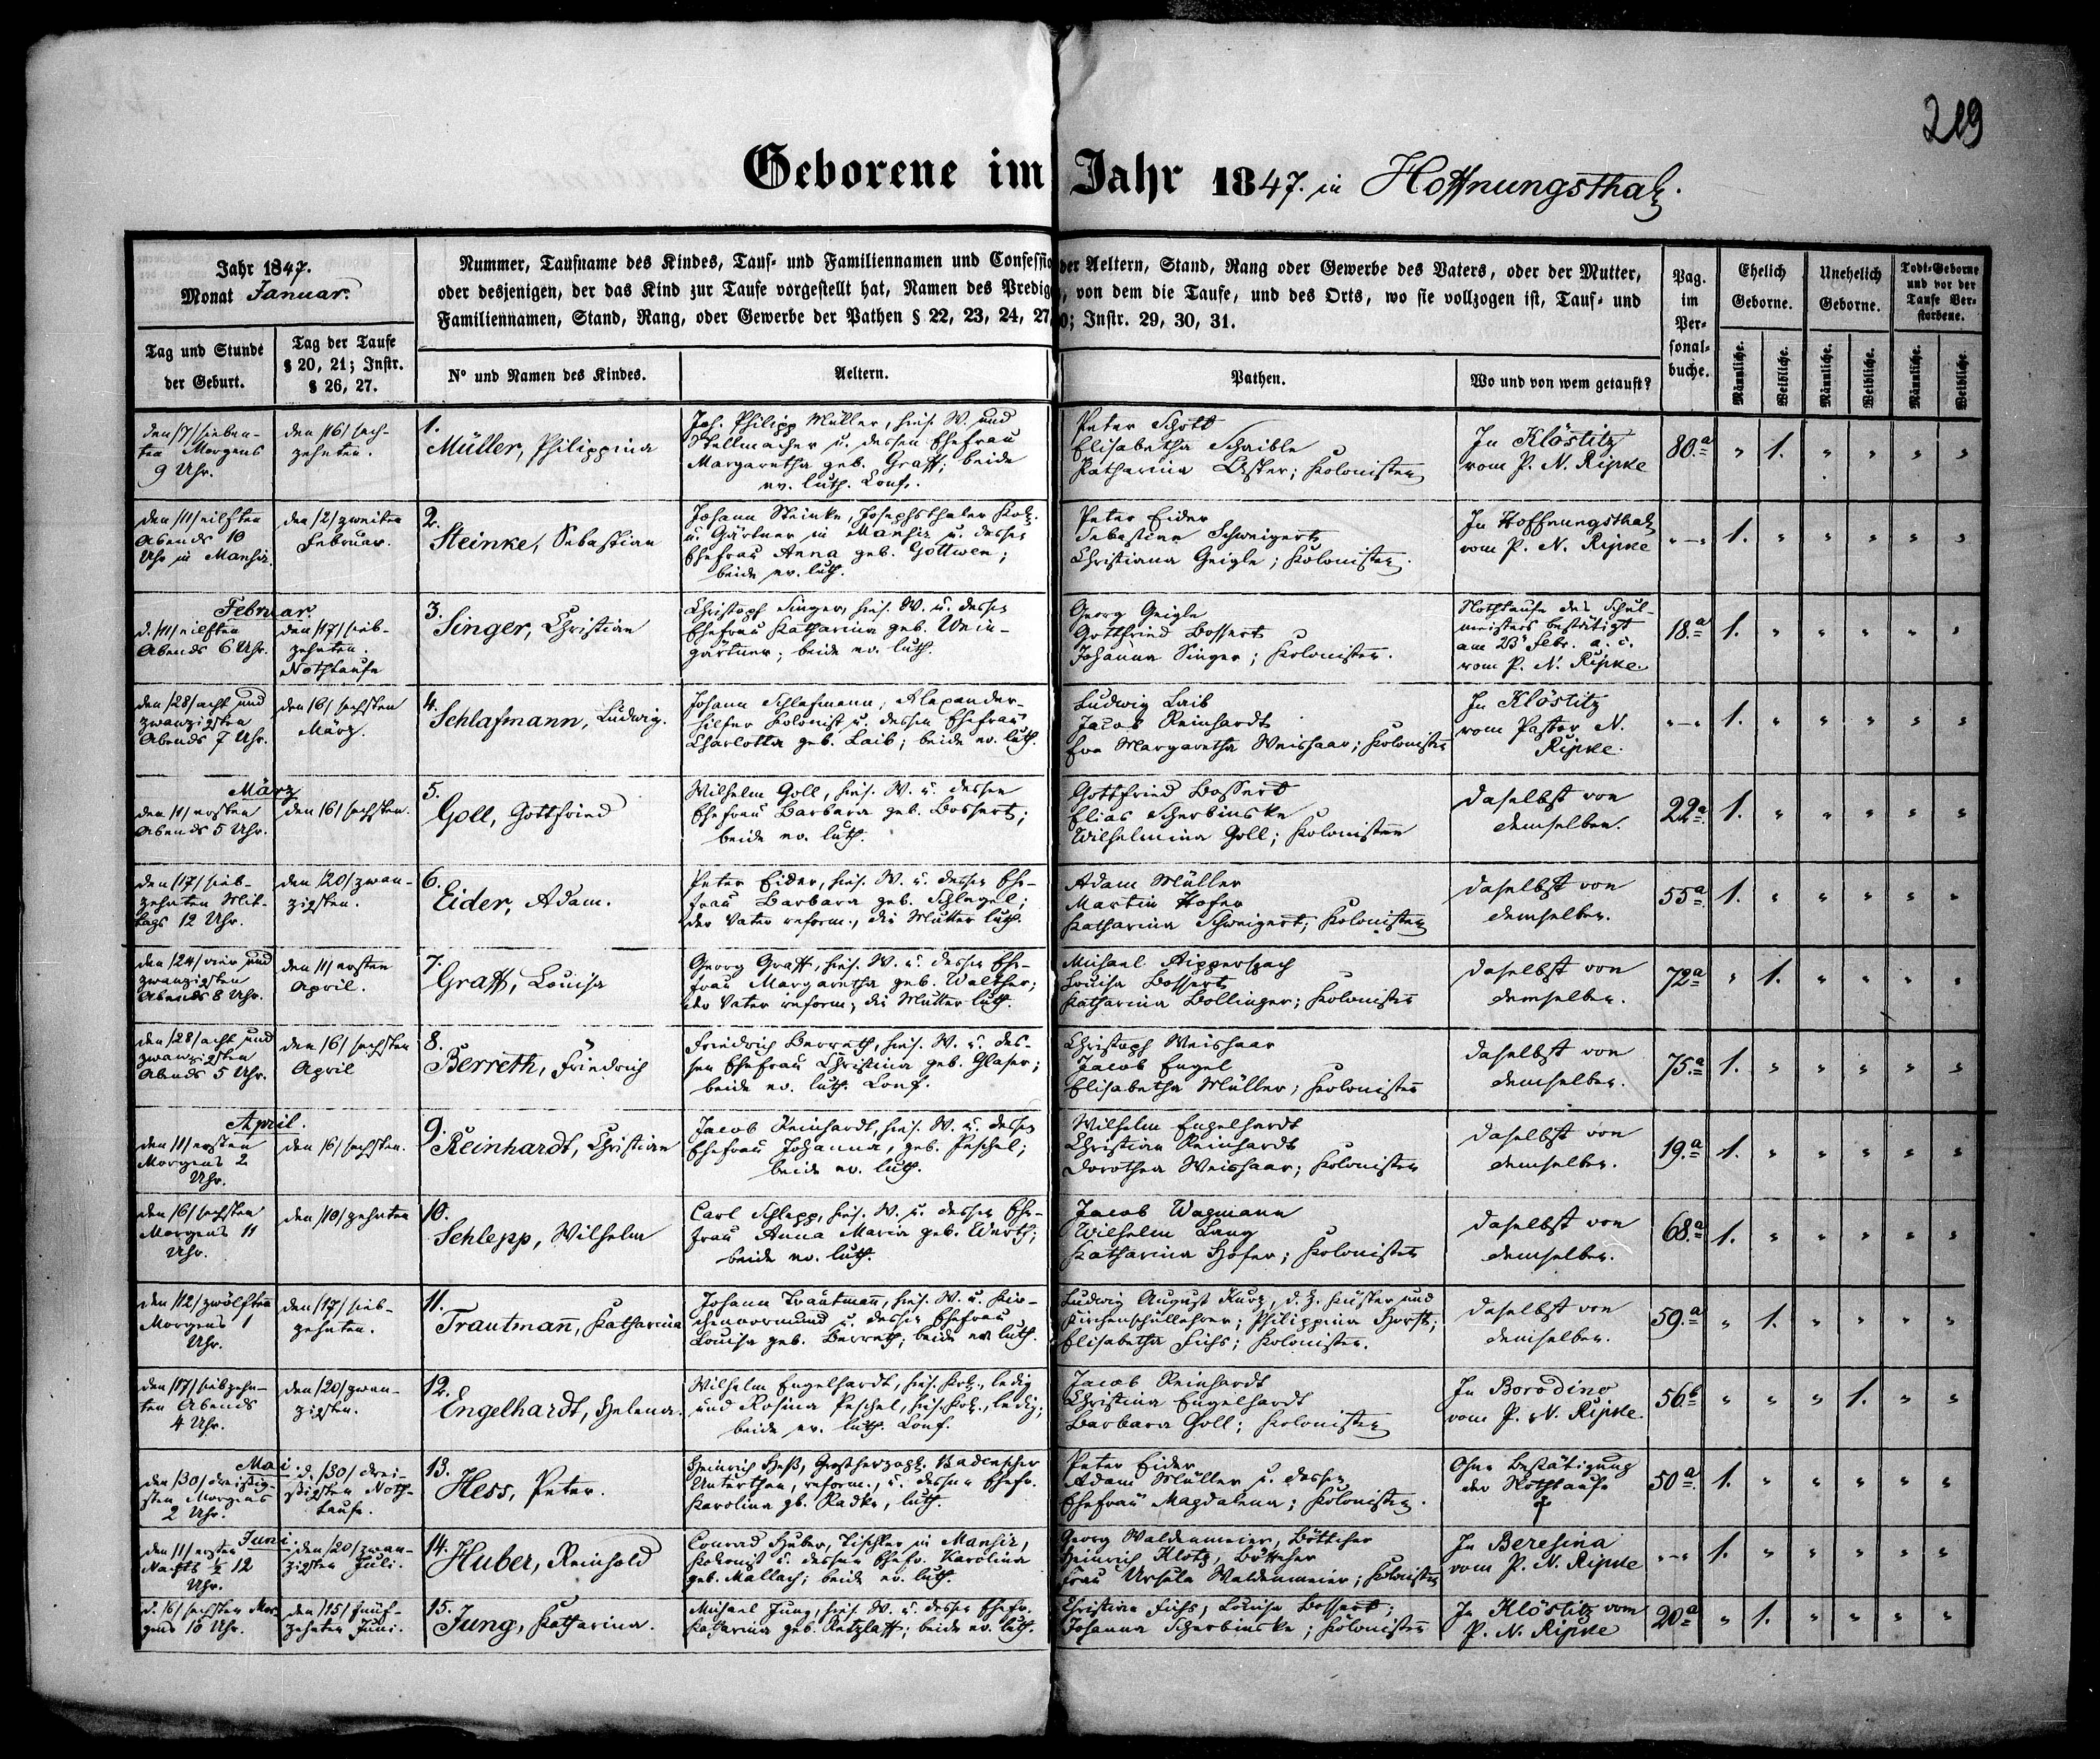 219
Geborene im Jahr 1847. in Hoffnungsthal.
Jahr 1847.
Monat Januar.
Nummer, Taufname des Kindes, Tauf- und Familiennamen und Confessio der Aeltern, Stand, Rang oder Gewerbe des Vaters, oder der Mutter,
oder desjenigen, der das Kind zur Taufe vorgestellt hat, Namen des Predig, von dem die Taufe, und des Orts, wo sie vollzogen ist, Tauf- und
Familiennamen, Stand, Rang, oder Gewerbe der Pathen § 22, 23, 24, 27 0; Instr. 29, 30, 31.
Pag.
im
Per-
sonal-
buche.
Ehelich
Geborne.
Unehelich
Geborne.
Todt-Geborne
und vor der
Taufe Ver-
storbene.
Tag und Stunde
der Geburt.
Tag der Taufe
§ 20, 21; Instr.
§ 26, 27.
No und Namen des Kindes.
Aeltern.
Pathen.
Wo und von wem getauft?
Männliche.
Weibliche.
Männliche.
Weibliche.
Männliche.
Weibliche.
den /7/ sieben-
ten Morgens
9 Uhr.
den /16/ sech-
zehnten.
1.
Müller, Philippina
Joh. Philipp Müller, hies. W. und
Stellmacher u. dessen Ehefrau
Margaretha geb. Graff; beide
ev. luth. Conf.
Peter Schott
Elisabetha Schaible
Katharina Aster; Kolonisten
In Klöstitz
vom P. N. Ripke
80.a
" 1. " " " "
den /11/ eilften
Abends 10
Uhr in Mansir.
den /2/ zweiten
Februar.
2.
Steinke, Sebastian
Johann Steinke, Josephsthaler Kol.
u. Gärtner in Mansir u. dessen
Ehefrau Anna geb. Göttwen;
beide ev. luth.
Peter Eider
Sebastian Schweigert
Christiana Geigle; Kolonisten.
In Hoffnungsthal
vom P. N. Ripke
"—"
1. " " " " "
Februar
d. /11/ eilften
Abends 6 Uhr.
den /17/ sieb-
zehnten.
Nothtaufe
3.
Singer, Christian
Christoph Singer, hies. W. u. dessen
Ehefrau Katharina geb. Wein-
gärtner; beide ev. luth.
Georg Geigle
Gottfried Bossert
Johanna Singer; Kolonisten.
Nothtaufe des Schul-
meisters bestätigt
am 23 Febr. a. c.
vom P. N. Ripke.
18.a
1. " " " " "
den /28/ acht und
zwanzigsten
Abends 7 Uhr.
den /6/ sechsten
März.
4.
Schlafmann, Ludwig.
Johann Schlafmann, Alexander-
hilfer Kolonist u. dessen Ehefrau
Charlotta geb. Laib; beide ev. luth.
Ludwig Laib
Jacob Reinhardt
Eva Margaretha Weishaar; Kolonisten
In Klöstitz
vom Pastor N.
Ripke.
"—"
1. " " " " "
März
den /1/ ersten
Abends 5 Uhr.
den /6/ sechsten.
5.
Goll, Gottfried
Wilhelm Goll, hies. W. u. dessen
Ehefrau Barbara geb. Bossert;
beide ev. luth.
Gottfried Bossert
Elias Scherbinske
Wilhelmina Goll; Kolonisten
Daselbst von
demselben.
22.a
1. " " " " "
den /17/ sieb-
zehnten Mit-
tags 12 Uhr.
den /20/ zwan-
zigsten.
6.
Eider, Adam.
Peter Eider, hies. W. u. dessen Ehe-
frau Barbara geb. Schlegel;
der Vater reform., die Mutter luth.
Adam Müller
Martin Hofer
Katharina Schweigert; Kolonisten
Daselbst von
demselben.
55.a
1. " " " " "
den /24/ vier und
zwanzigsten
Abends 8 Uhr.
den /11/ ersten
April.
7.
Graff, Louisa
Georg Graff, hies. W. u. dessen Ehe-
frau Margaretha geb. Walther;
der Vater reform, die Mutter luth.
Michael Aipperspach
Louisa Bossert
Katharina Bollinger; Kolonisten
Daselbst von
demselben.
72.a
" 1. " " " "
den /28/ acht und
zwanzigsten
Abends 5 Uhr.
den /6/ sechsten
April
8.
Berreth, Friedrich
Friedrich Berreth, hies. W. u. des-
sen Ehefrau Christina geb. Glaser;
beide ev. luth. Conf.
Christoph Weishaar
Jacob Engel
Elisabetha Müller; Kolonisten
Daselbst von
demselben.
75.a
1. " " " " "
April.
den /1/ ersten
Morgens 2
Uhr.
den /6/ sechsten.
9.
Reinhardt, Christian
Jacob Reinhardt, hies. W. u. dessen
Ehefrau Johanna, geb. Peschel;
beide ev. luth.
Wilhelm Engelhardt
Christian Reinhardt
Dorothea Weishaar; Kolonisten
Daselbst von
demselben.
19.a
1. " " " " "
den /6/ sechsten
Morgens 11
Uhr.
den /10/ zehnten
10.
Schlepp, Wilhelm
Carl Schlepp, hies. W. u. dessen Ehe-
frau Anna Maria geb. Wurth;
beide ev. luth.
Jacob Wagmann
Wilhelm Lang
Katharina Hofer; Kolonisten
Daselbst von
demselben.
68.a
1. " " " " "
den /12/ zwölften
Morgens 1
Uhr.
den /17/ sieb-
zehnten.
11.
Trautmann, Katharina
Johann Trautmann, hies. W. u. Kir-
chenvormund u. dessen Ehefrau
Louisa geb. Berreth; beide ev. luth.
Ludwig August Kurz, d. Z. Küster und
Kirchenschullehrer; Philippina Horst;
Elisabetha Fuchs; Kolonisten.
Daselbst von
demselben.
59.a
" 1. " " " "
den /17/ siebzehn-
ten Abends
4 Uhr.
den /20/ zwan-
zigsten.
12.
Engelhardt, Helena.
Wilhelm Engelhardt, hies. Kol., ledig
und Rosina Peschel, hies. Kol., ledig;
beide ev. luth. Conf.
Jacob Reinhardt
Christina Engelhardt
Barbara Goll; Kolonisten
In Borodino
vom P. N. Ripke.
56.b
" " " 1. " "
Mai.
den /30/ dreißig-
sten Morgens
2 Uhr.
d. /30/ drei-
ßigsten Noth-
taufe.
13.
Hess, Peter.
Heinrich Heß, Großherzogl. Badenscher
Unterthan, reform., u. dessen Ehefr.
Karolina gb. Radke, luth.
Peter Eider
Adam Müller u. dessen
Ehefrau Magdalena; Kolonisten.
Ohne Bestätigung
der Nothtaufe
†
50.a
1. " " " " "
Juni
den /1/ ersten
Nachts ½ 12
Uhr.
den /20/ zwan-
zigsten Juli.
14.
Huber, Reinhold
Conrad Huber, Tischler in Mansir,
Kolonist u. dessen Ehefr. Karolina
geb. Mallach; beide ev. luth.
Georg Waldenmeier, Böttcher
Heinrich Klotz, Böttcher
Frau Ursula Waldenmeier; Kolonisten
In Beresina
vom P. N. Ripke
"—"
1. " " " " "
d. /6/ sechsten Mor-
gens 10 Uhr.
den /15/ fünf-
zehnten Juni.
15.
Jung, Katharina.
Michael Jung, hies. W. u. dessen Ehefr.
Katharina geb. Retzlaff; beide ev. luth.
Christian Fuchs, Louisa Bossert;
Johanna Scherbinske; Kolonisten
In Klöstitz vom
P. N. Ripke
20.a
" 1. " " " "